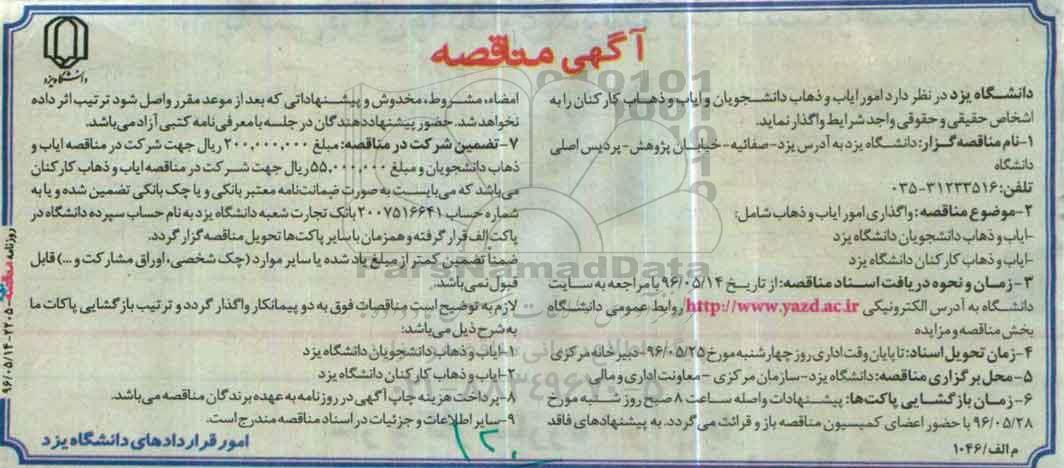 دانشگاه یزد
آگهی مناقصه
دانشگاه یزد در نظر دارد امور ایاب و ذهاب دانشجویان و ایاب و ذهاب کارکنان را به
اشخاص حقیقی و حقوقی واجد شرایط واگذار نماید.
۱-نام مناقصه گزار: دانشگاه یزد به آدرس یزد-صفائیه-خیابان پژوهش-پردیس اصلی
دانشگاه
تلفن: ۳۱۲۳۳۵۱۶-۰۳۵
۲-موضوع مناقصه: واگذاری امور ایاب و ذهاب شامل:
-ایاب و ذهاب دانشجویان دانشگاه یزد
-ایاب و ذهاب کارکنان دانشگاه یزد
۳-زمان و نحوه دریافت اسناد مناقصه: از تاریخ ۹۶/۰۵/۱۴ با مراجعه به سایت
دانشگاه به آدرس الکترونیکی http://www.yazd.ac.ir روابط عمومی دانشگاه
بخش مناقصه و مزایده
۴-زمان تحویل اسناد: تا پایان وقت اداری روز چهارشنبه مورخ ۹۶/۰۵/۲۵-دبیرخانه مرکزی
۵-محل برگزاری مناقصه: دانشگاه یزد-سازمان مرکزی -معاونت اداری و مالی
۶-زمان بازگشایی پاکت‌ها: پیشنهادات واصله ساعت ۸ صبح روز شنبه مورخ
۹۶/۰۵/۲۸ با حضور اعضای کمیسیون مناقصه باز و قرائت می گردد. به پیشنهادهای فاقد
م الف/۱۰۴۶
امضاء، مشروط، مخدوش و پیشنهاداتی که بعد از موعد مقرر واصل شود ترتیب اثر داده
نخواهد شد. حضور پیشنهاددهندگان در جلسه با معرفی‌نامه کتبی آزاد می‌باشد.
۷-تضمین شرکت در مناقصه: مبلغ ۲۰۰,۰۰۰,۰۰۰ ریال جهت شرکت در مناقصه ایاب و
ذهاب دانشجویان و مبلغ ۵۵,۰۰۰,۰۰۰ ریال جهت شرکت در مناقصه ایاب و ذهاب کارکنان
می‌باشد که می‌بایست به صورت ضمانت‌نامه معتبر بانکی و یا چک بانکی تضمین شده و یا به
شماره حساب ۲۰۰۷۵۱۶۶۴۱ بانک تجارت شعبه دانشگاه یزد به نام حساب سپرده دانشگاه در
پاکت الف قرار گرفته و همزمان با سایر پاکت‌ها تحویل مناقصه گزار گردد.
ضمناً تضمین کمتر از مبلغ یاد شده یا سایر موارد (چک شخصی، اوراق مشارکت و ...) قابل
قبول نمی‌باشد.
لازم به توضیح است مناقصات فوق به دو پیمانکار واگذار گردد و ترتیب بازگشایی پاکات ما
به شرح ذیل می‌باشد:
۱-ایاب و ذهاب دانشجویان دانشگاه یزد
۲-ایاب و ذهاب کارکنان دانشگاه یزد
۸-پرداخت هزینه چاپ آگهی در روزنامه به عهده برندگان مناقصه می‌باشد.
۹-سایر اطلاعات و جزئیات در اسناد مناقصه مندرج است.
امور قراردادهای دانشگاه یزد
روزنامه مناقصه-۲۲۰۵-۹۶/۰۵/۱۴
ParsNamadData